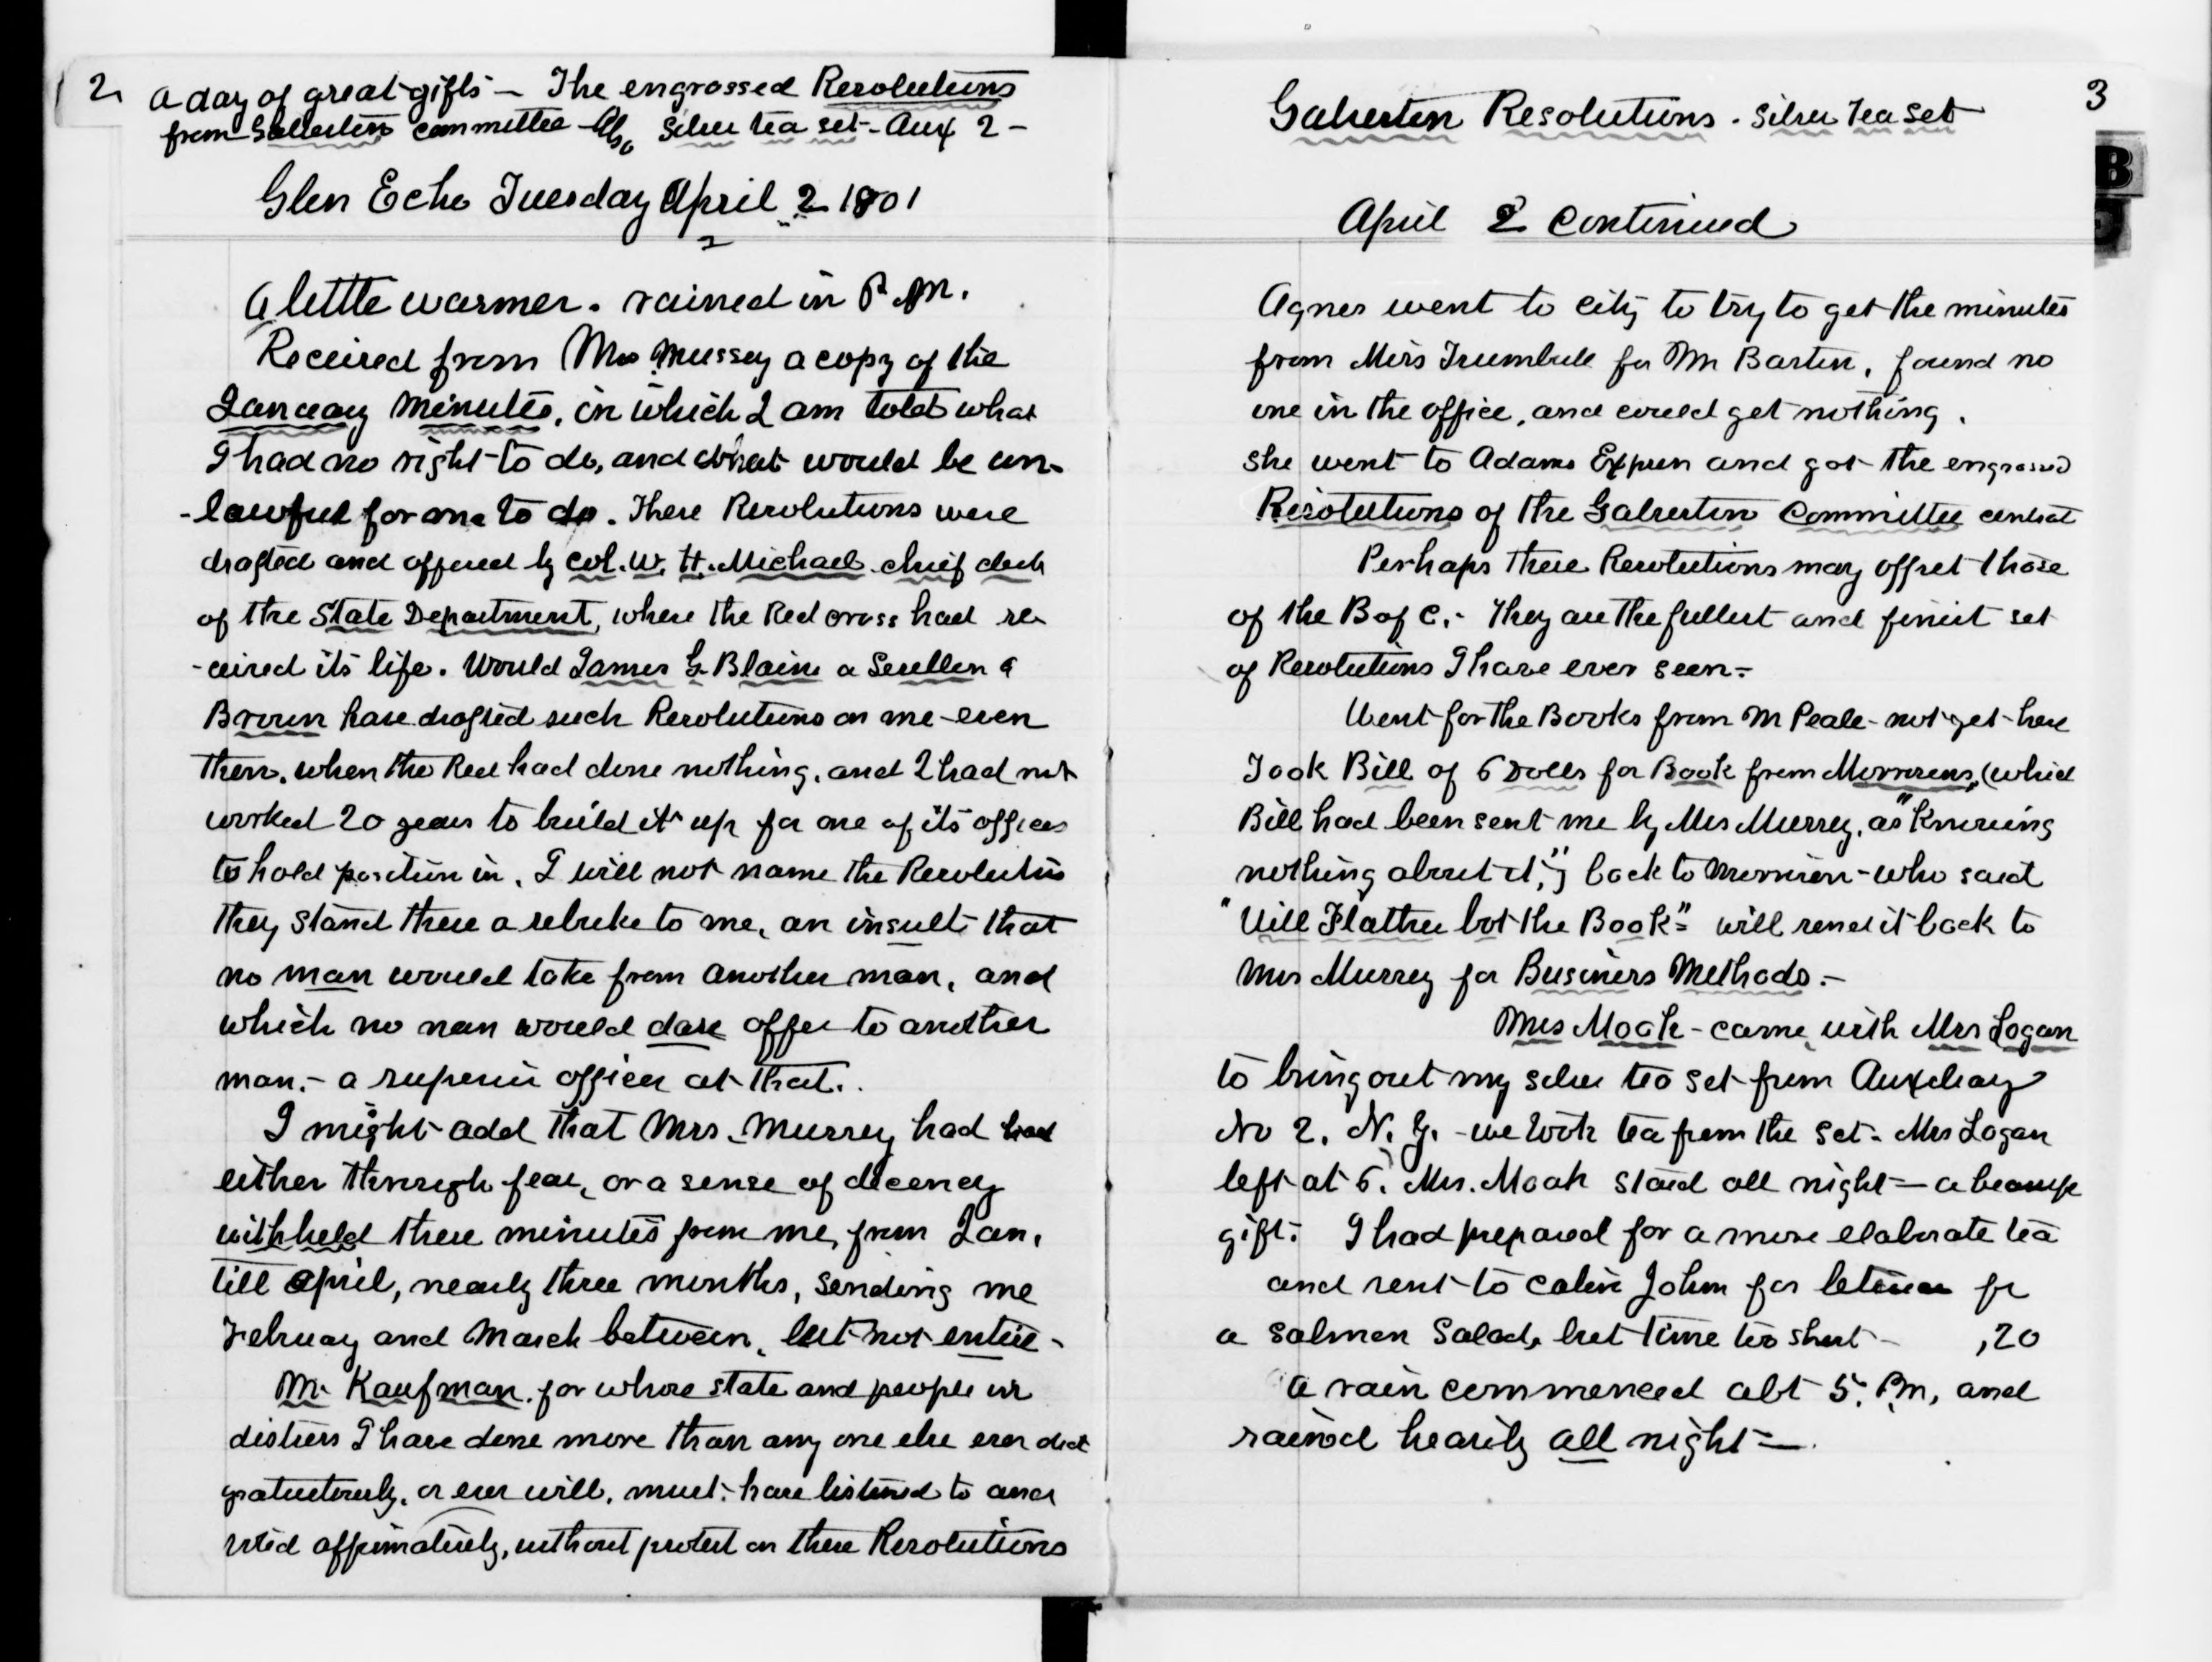 2
a day of great gifts - The engrossed Resolutions
from Galveston committee Also Silver tea set - Aux 2 -
Glen Echo Tuesday April 2 1901
2
A little warmer. rained in P.M.
Received from Mrs Mussey a copy of the
January Minutes, in which I am told what
I had no right to do, and what would be un-
-lawful for me to do. These Resolutions were
drafted and offered by Col. W. H. Michael chief clerk
of the State Department, where the Red cross had re-
-ceived its life. Would James G Blaine a Sevellon A
Brown have drafted such Resolutions on me - even
then. when the Red had done nothing. and I had not
worked 20 years to build it up for one of its officers
to hold position in. I will not name the Resolutions
they stand there a rebuke to me, an insult that
no man would take from another man, and
which no man would dare offer to another
man. - a superior officer at that.
I might add that Mrs. Mussey had had
either through fear, or a sense of decency
withheld these minutes from me, from Jan.
till April, nearly three months, sending me
February and March between, but not entire -
Mr Kaufman. for whose state and people in
distress I have done more than any one else ever did
gratuitously. or ever will, must have listened to and
voted affirmatively, without protest on these Resolutions
3
Galveston Resolutions. Silver Tea Set
B
April 2 Continued
Agnes went to city to try to get the minutes
from Miss Trumbull for Mr Barton, found no
one in the office, and could get nothing.
she went to Adams Express and got the engrossed
Resolutions of the Galveston Committee central
Perhaps these Resolutions may offset those
of the B of C. - They are the fullest and finest set
of Resolutions I have ever seen -
Went for the Books from Mr Peale - not yet here
Took Bill of 6 Dolls for Book from Morrisons, (which
Bill had been sent me by Mrs Mussey. as "Knowing
nothing about it,") back to Morrison - who said
"Will Flather bot the Book" will send it back to
Mrs Mussey for Business Methods. -
Mrs Moak - came with Mrs Logan
to bring out my silver tea set from Auxiliary
No 2. N. Y. - we took tea from the set. Mrs Logan
left at 6. Mrs. Moak staid all night - a
gift. I had prepared for a more elaborate tea
and sent to Cabin John for lettuce for
a salmon Salad, but time too short - ,20
A rain commenced abt 5. P.m, and
rained heavily all night -